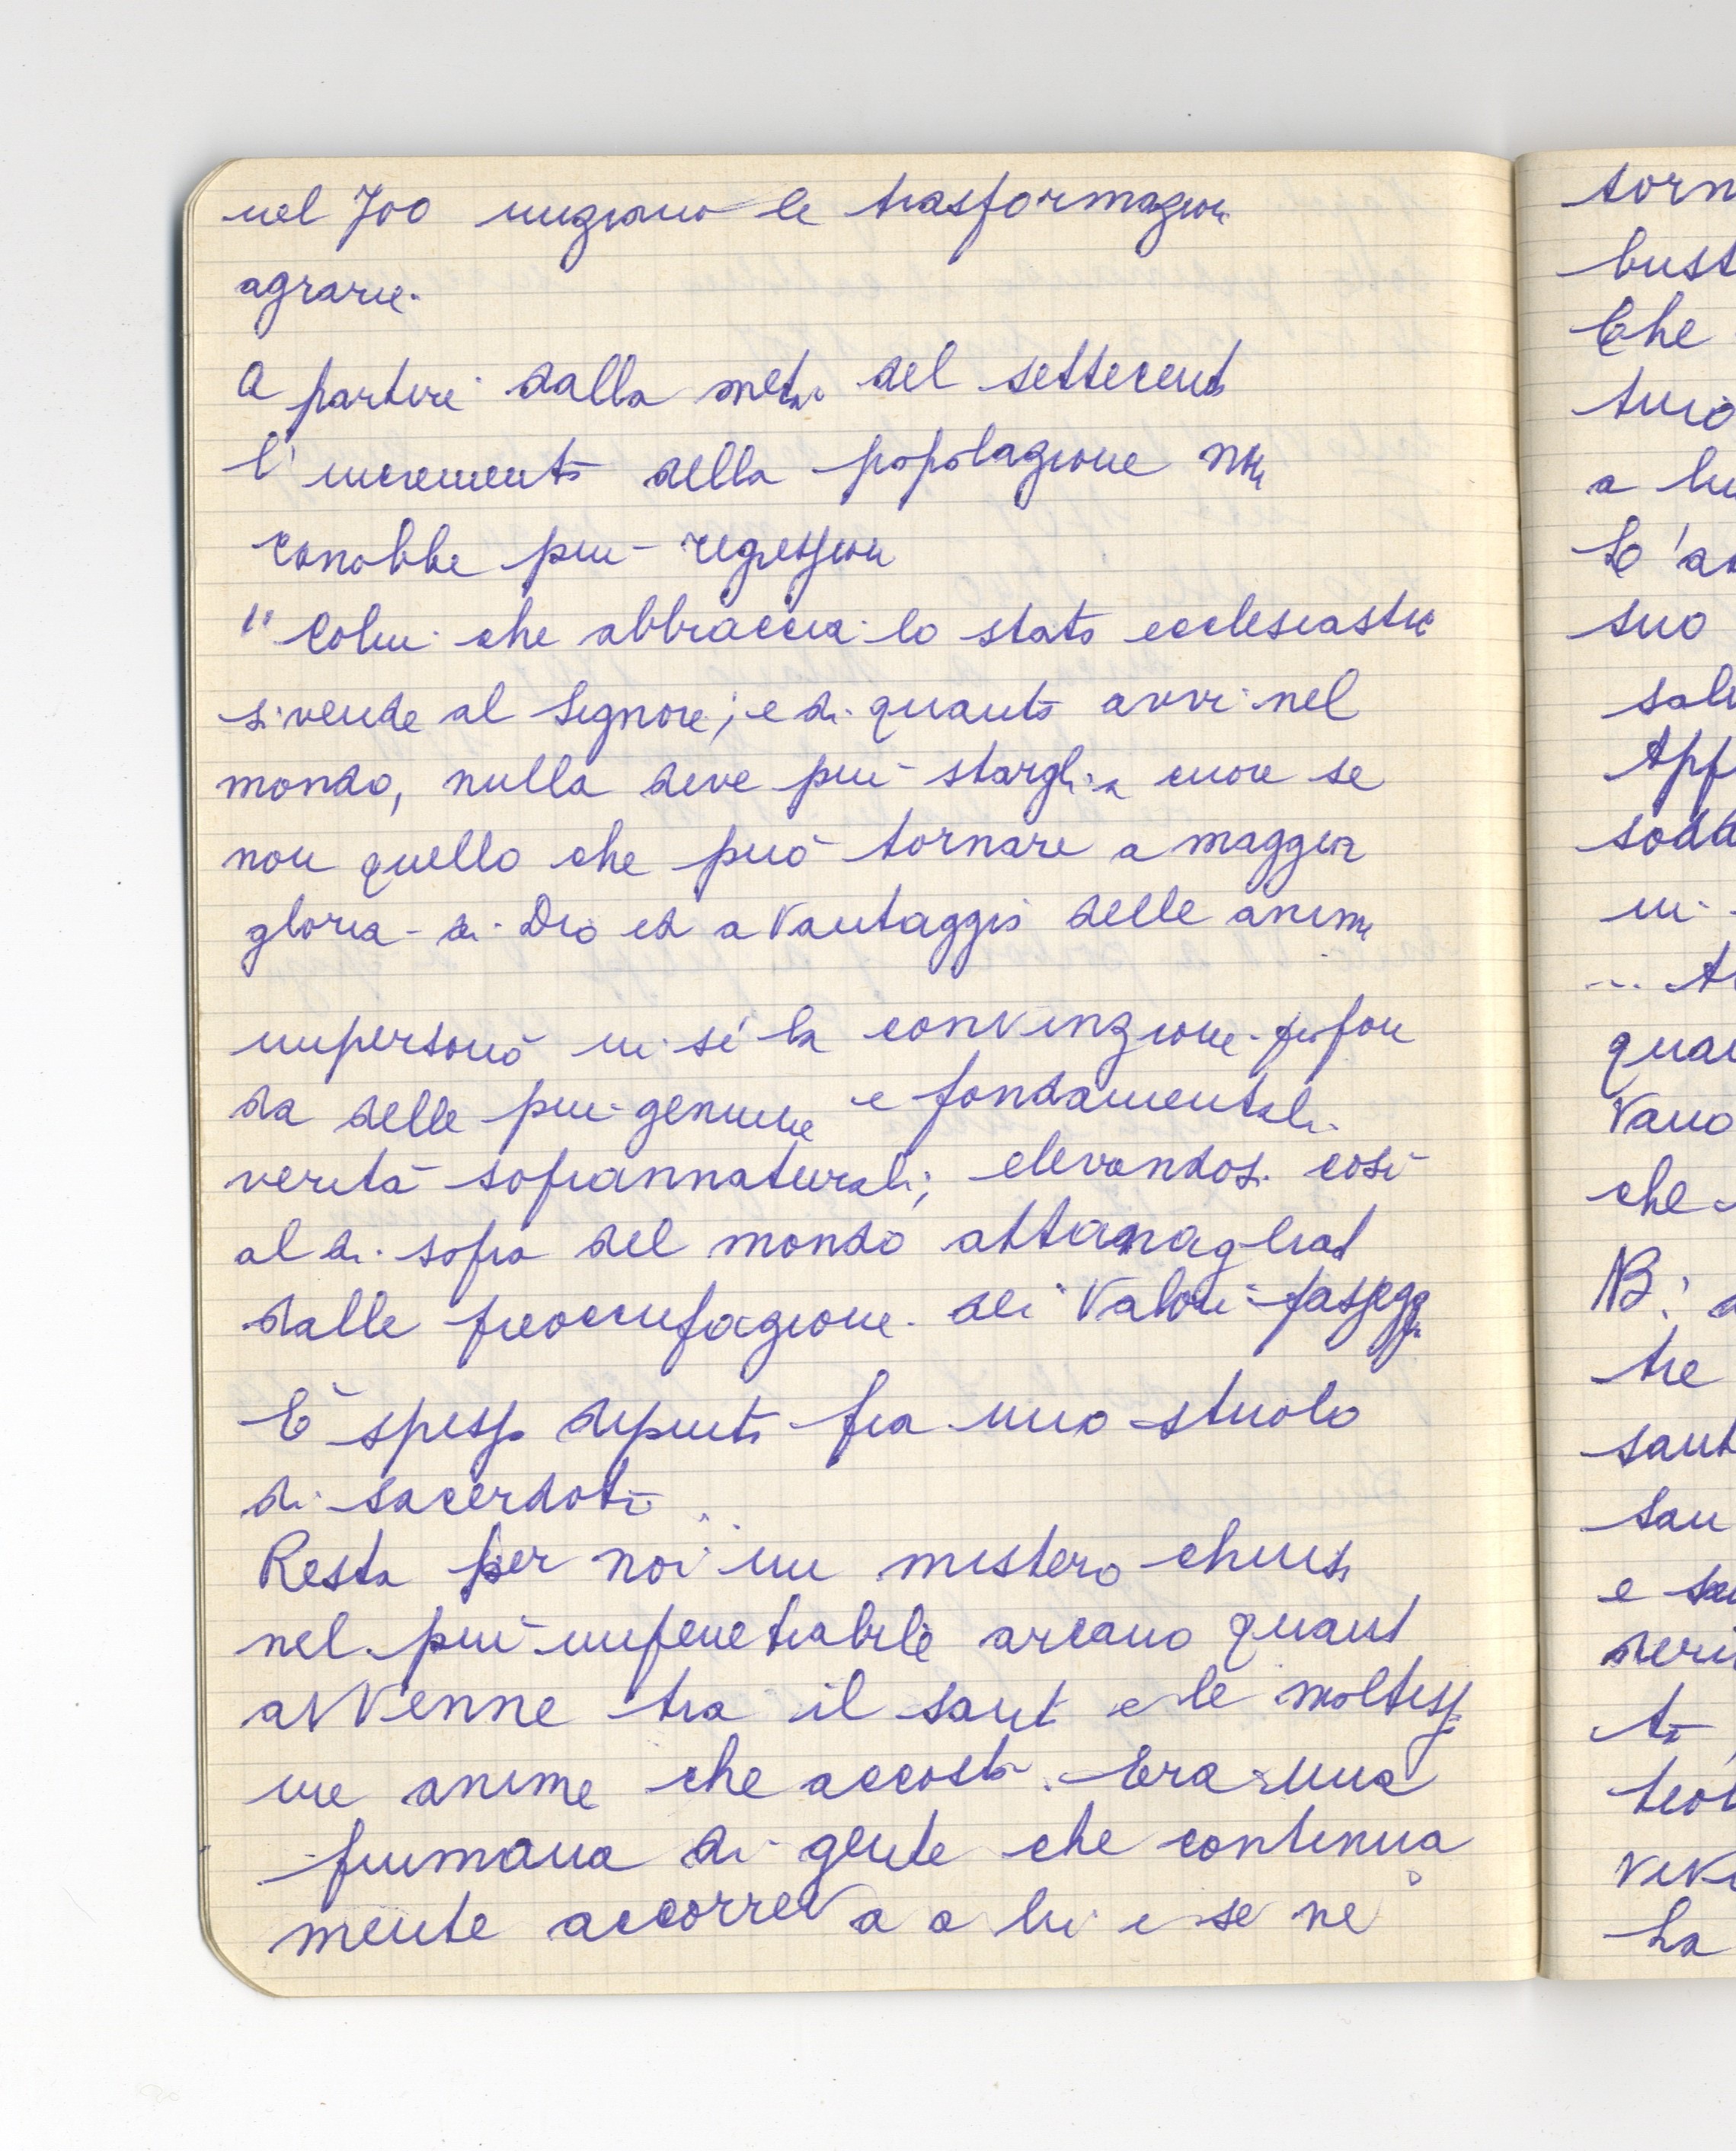 nel 700 iniziano le trasformazioni
agrarie.
A partire dalla metà del settecento
l'incremento della popolazione non
conobbe più regressioni
" Colui che abbraccia lo stato ecclesiastico
si vende al Signore; e di quanto avvi nel
mondo, nulla deve più stargli a cuore se
non quello che può tornare a maggior
gloria di Dio ed a vantaggio delle anime
impersonò in sé la convinzione profon
da delle più genuine e fondamentali
verità soprannaturali; elevandosi così
al di sopra del mondo attanagliato
dalle preoccupazione dei valori passegge
È spesso dipinto fra uno stuolo
di sacerdoti
Resta per noi un mistero chiuso
nel più impenetrabile arcano quanto
avvenne tra il santo e le moltissi
me anime che accostò. Era una
fiumana di gente che continua
mente accorreva a lui e se ne
torn
bust
Che
a lu
L'a
suo
salv
App
sodd
in
...
qua
vano
che
NB:
tre
sant
san
e
veri
ti
ha